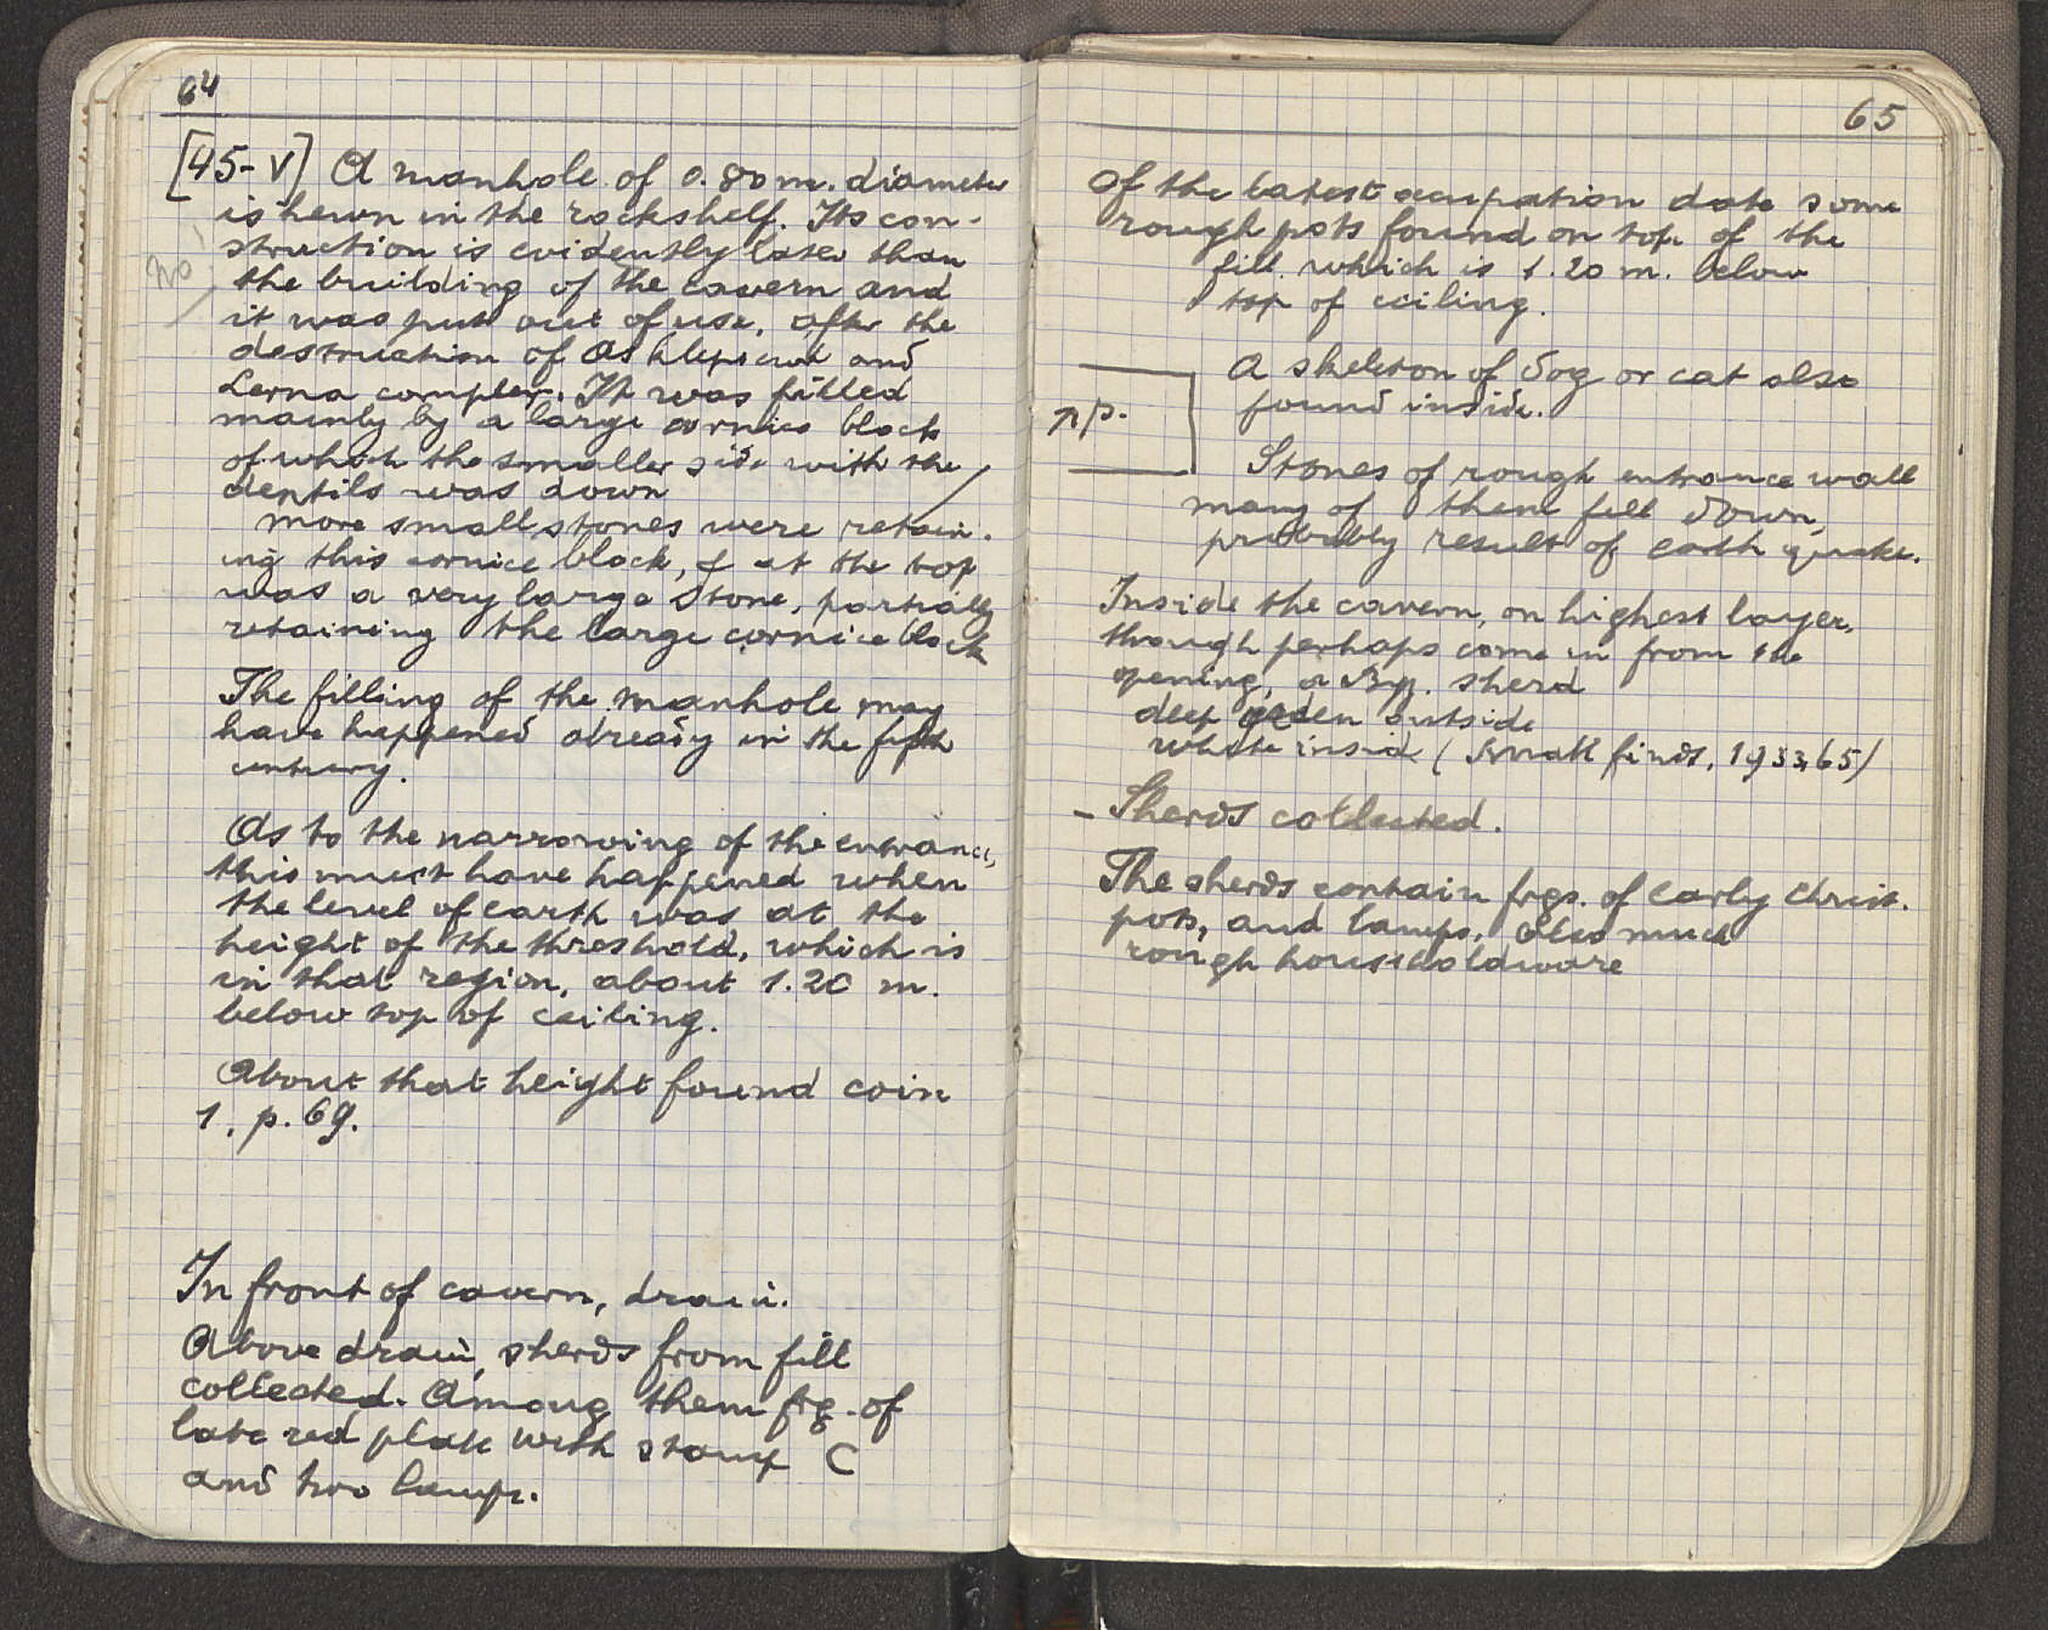 64
[45-V] A manhole of 0.80 m. diameter
is hewn in the rockshelf. Its con-
struction is evidently later than
no
the building of the cavern and
it was put out of use, after the
destruction of Asklepieion and
Lerna complex. It was filled
mainly by a large cornice block
of which the smaller side with the
dentils was down
more small stones were retain-
ing this cornice block, & at the top
was a very large stone, partially
retaining the large cornice block
The filling of the manhole may
have happened already in the fifth
century.
As to the narrowing of the entrance,
this must have happened when
the level of earth was at the
height of the threshold, which is
in that region, about 1.20 m.
below top of ceiling.
About that height found coin
1, p. 69.
In front of cavern, drain.
Above drain, sherds from fill
collected. Among them frg. of
late red plate with stamp C
and two lamps.
65
Of the latest occupation date some
rough pots found on top of the
fill which is 1.20 m. below
top of ceiling.
A skeleton of dog or cat also
found inside.
p.
Stones of rough entrance wall
many of them fell down,
probably result of earth quake.
Inside the cavern, on highest layer,
though perhaps come in from the
opening, a Byz. sherd
deep green outside
white inside (Small finds, 1933, 65)
- Sherds collected.
The sherds contain frgs. of early Christ.
pots, and lamps. Also much
rough householdware